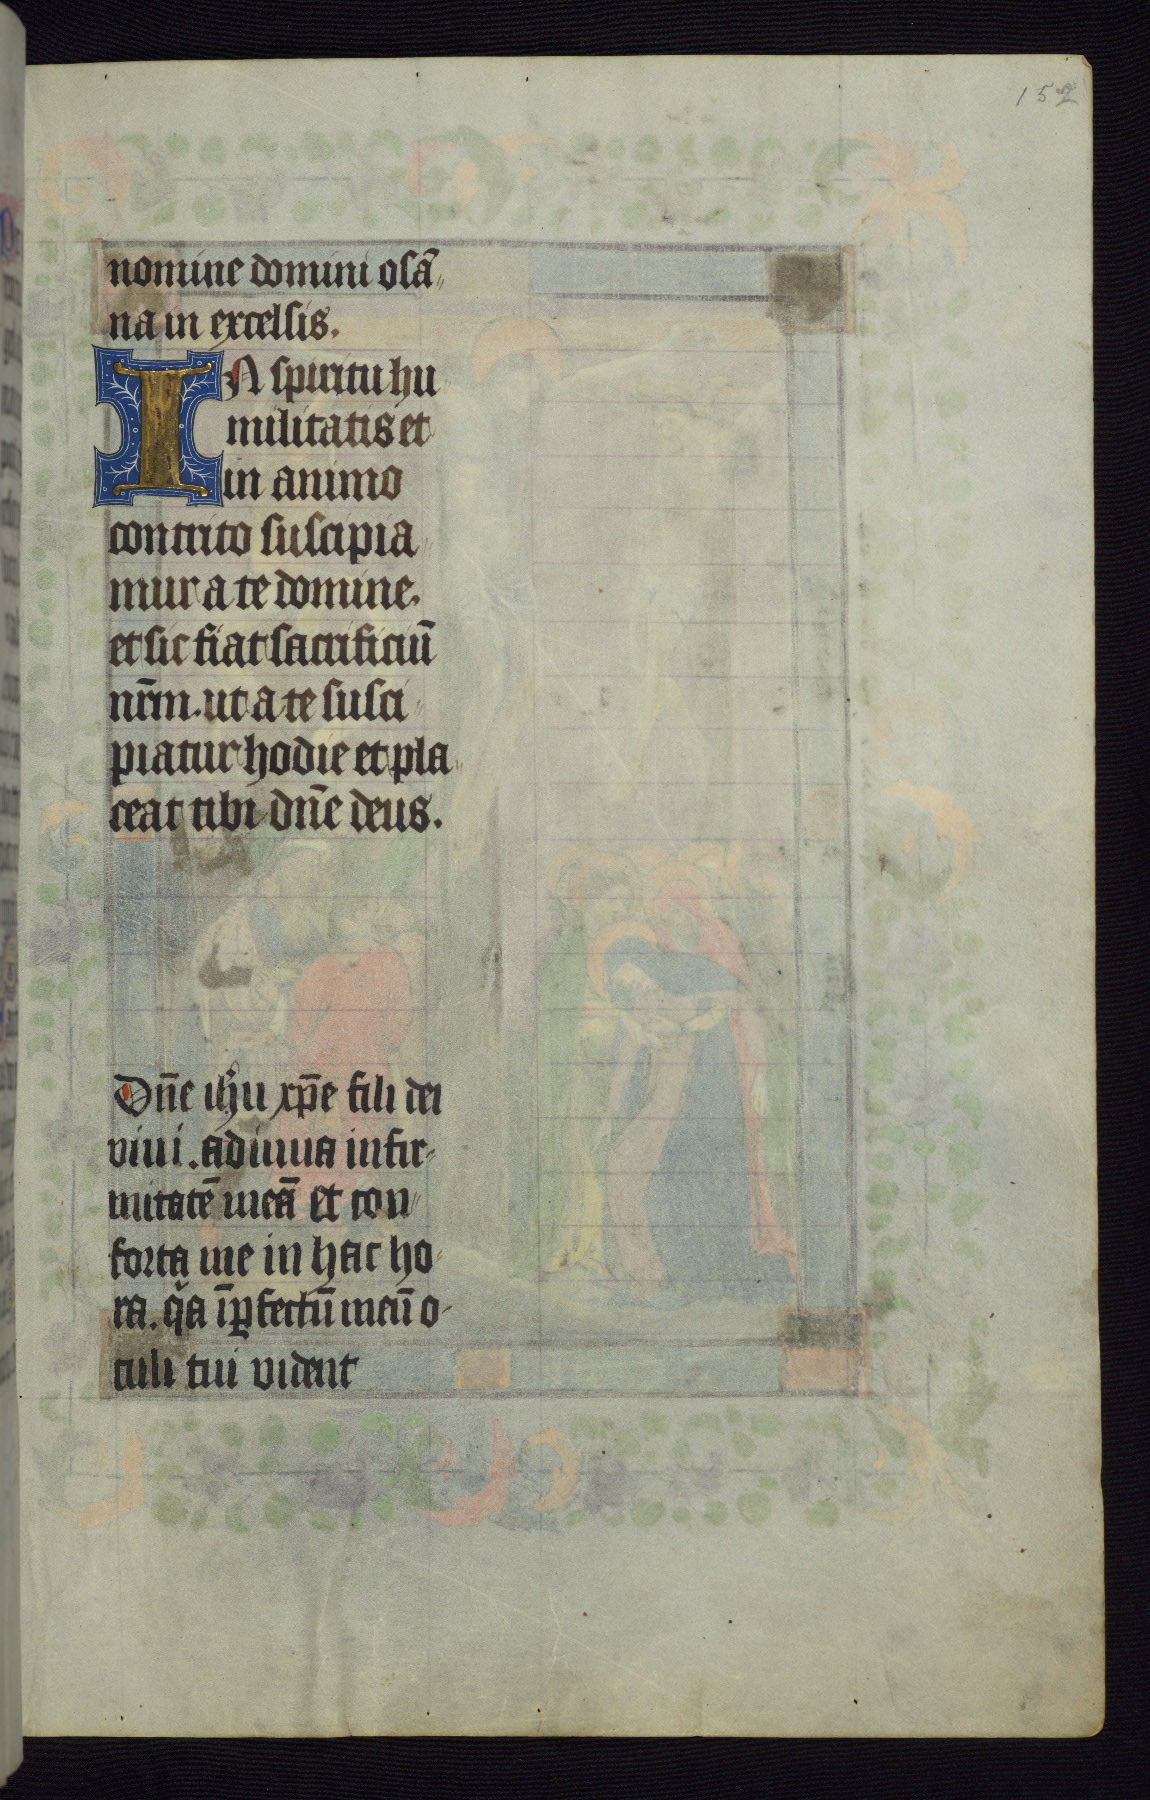 152
nomine domini osā
na in excelsis.
IN spiritu hu
militatis et
in animo
contrito suscipia
mur a te domine.
et sic fiat sacrificiū
nr̄m. ut a te susci
piatur hodie et pla
ceat tibi dn̄e deus.
Dn̄e ih̄u xp̄e fili dei
viui. adiuua infir-
mitatē meā et con
forta me in hac ho
ra. q̄a īꝑfectū meū o-
culi tui vident